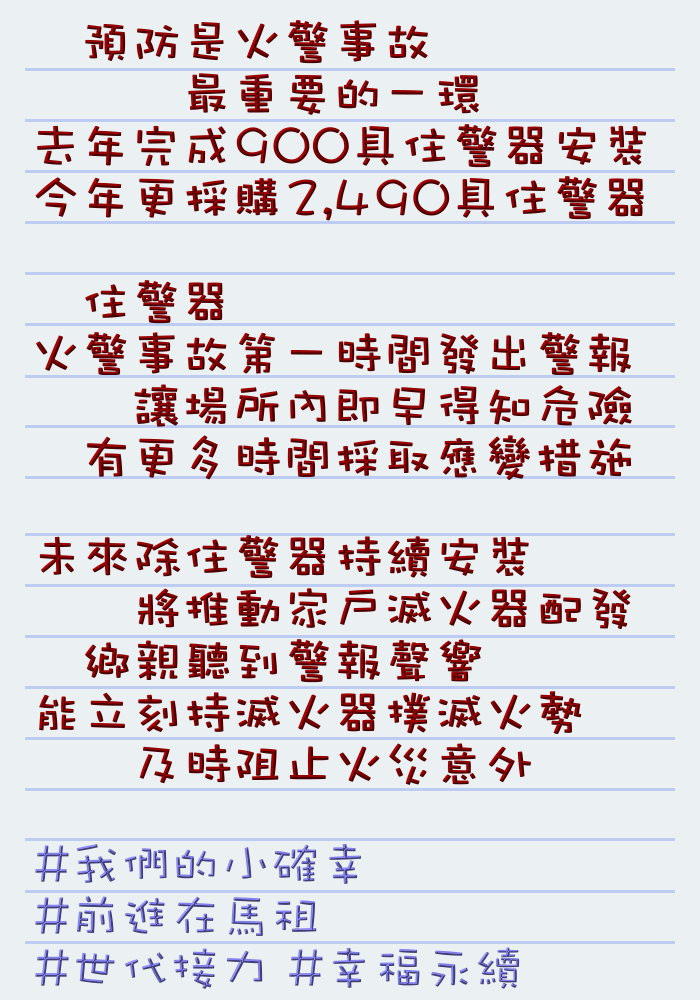 預防是火警事故
最重要的一環
去年完成900具住警器安裝
今年更採購2,490具住警器
住警器
火警事故第一時間發出警報
讓場所內即早得知危險
有更多時間採取應變措施
未來除住警器持續安裝
將推動家戶滅火器配發
鄉親聽到警報聲響
能立刻持滅火器撲滅火勢
及時阻止火災意外
#我們的小確幸
#前進在馬祖
#世代接力 #幸福永續